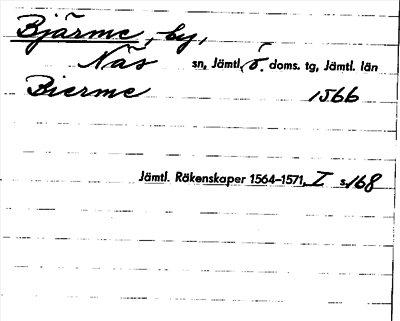 Bjärme, by,
Näs sn, Jämtl. ö. doms. tg, Jämtl. län
Bierme 1566
Jämtl. Räkenskaper 1564-1571, I s. 168